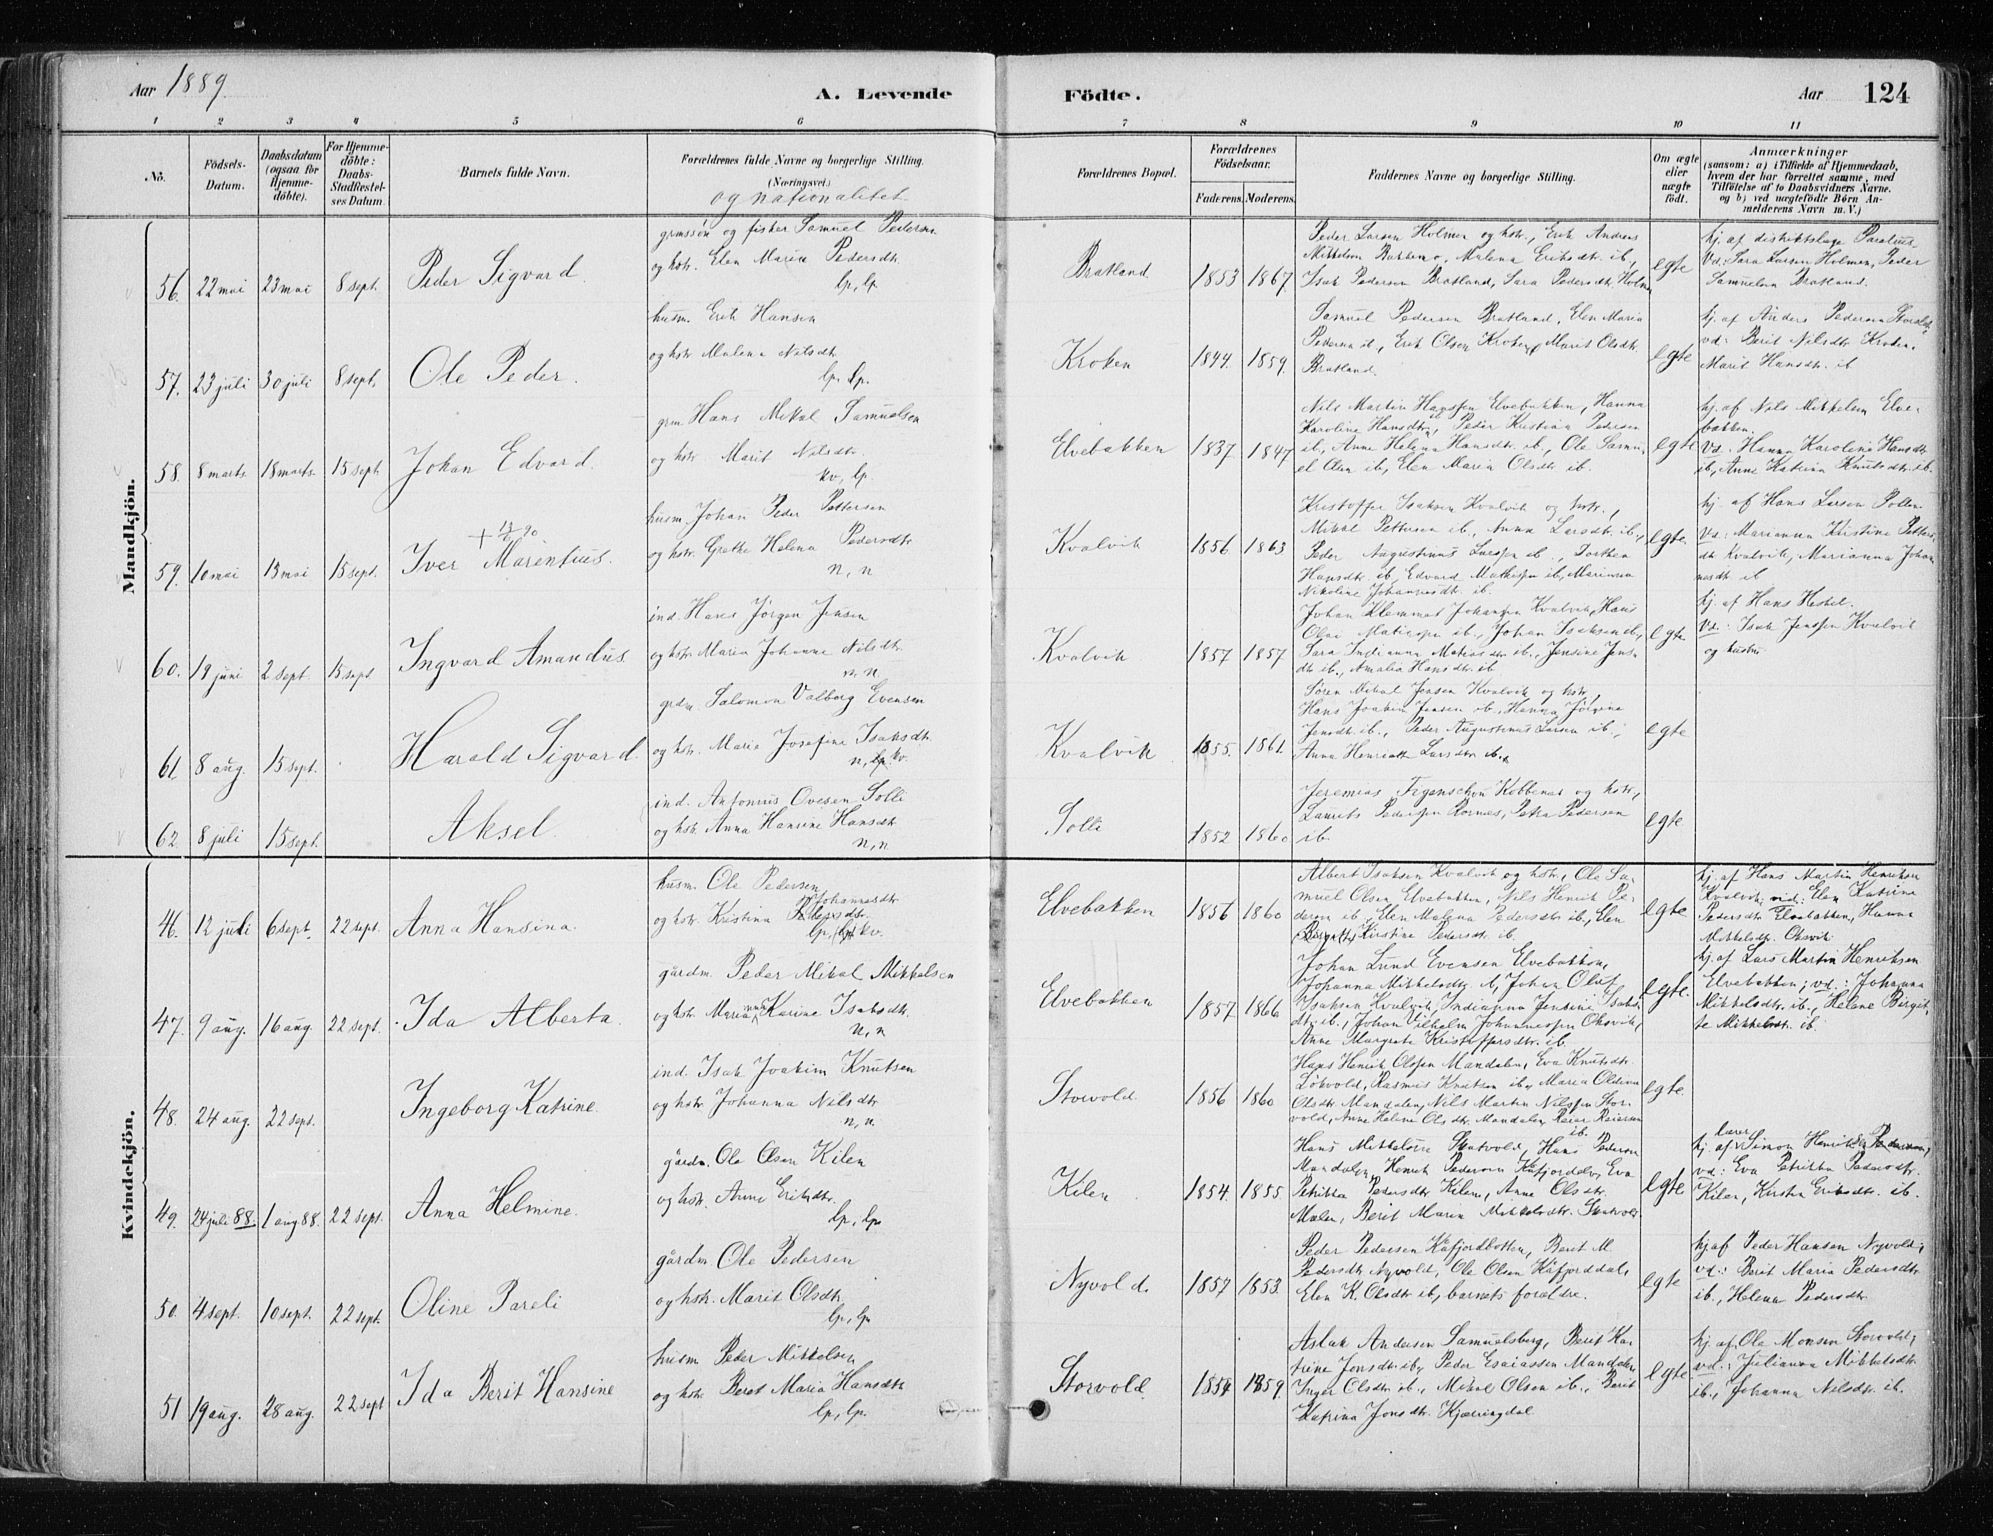 Aar 1889. A. Levende Födte. Aar 124
1 2 3 4 5 6 7 8 9 10 11
No. Födsels-Datum. Daabsdatum (ogsaa for Hjemmedöbte). For Hjemmedöbte: Daabs-Stadfæstelses Datum. Barnets fulde Navn. Forældrenes fulde Navne og borgerlige Stilling. (Næringsvei.) og nationalitet
Forældrenes Bopæl. Forældrenes Födselsaar. Faderens. Moderens. Faddernes Navne og borgerlige Stilling. Om ægte eller uægte födt. Anmærkninger (saasom: a) i Tilfælde af Hjemmedaab, hvem der har forrettet samme, med Tilföielse af to Daabsvidners Navne, og b) ved uægtefödte Børn Anmelderens Navn m.V.)
Mandkjön.
56. 22 mai 23 mai 8 sept. Peder Sigvard
grmssön og fisker Samuel Pedersen
og hstr. Elen Maria Pedersdtr.
lp, lp
Bratland 1853 1867
Peder Larsen Holmen og hstr., Erik Andreas
Mikkelsen, Malena Eriksdtr. ib.,
Isak Pedersen Bratland, Sara Pedersdtr. Holmen
egte
hj. af distriktslæge
Vd: Sara Larsen Holmen, Peder
Samuelsen Bratland.
57. 23 juli 30 juli 8 sept. Ole Peder.
husm. Erik Hansen
og hstr. Malena Nilsdtr.
lp, lp.
Kroken 1844. 1859.
Samuel Pedersen Bratland, Elen Maria
Pedersen ib, Erik Olsen Kroken, Marit Olsdtr.
Bratland.
egte
hj. af Anders Pedersen
vd: Berit Nilsdtr. Kroken,
Marit Hansdtr. ib
58. 8 marts 18 marts. 15 sept. Johan Edvard.
grm Hans Mikal Samuelsen
og hstr. Marit Nilsdtr.
kv, lp.
Elvebakken 1837 1847
Nils Martin Hansen Elvebakken, Hanna
Karoline Hansdtr. ib, Peder Kristian Pedersen
ib, Anne Helena Hansdtr. ib., Ole Samu-
el Olsen ib, Elen Maria Olsdtr. ib.
egte
hj. af Nils Mikkelsen Elve-
bakken.
Vd: Hanna Karoline Hansdtr.
ib, Anne Katrina Knutsdtr. ib.
59. 10 mai 13 mai 15 sept. Iver Marentius.
husm. Johan Peder Pettersen
og hstr. Grethe Helena Pedersdtr.
n, n
Kvalvik 1856 1863
Kristoffer Isaksen Kvalvik og hstr.,
Mikkel Pettersen ib., Anna Larsdtr. ib.,
Peder Augustinus Larsen ib., Dorthea
Hansdtr. ib, Edvard Mathisen ib, Marianna
Nikoline Johannesdtr. ib.
egte
hj. af Hans Larsen Pollen
Vd: Marianna Kristine Petters-
dtr. Kvalvik, Marianna Johan-
nesdtr. ib
60. 19 juni 2 sept. 15 sept. Ingvard Amandus.
ind. Hans Jörgen Jensen
og hstr. Maria Johanne Nilsdtr.
n. n.
Kvalvik 1857 1857
Johan Klemmet Johansen Kvalvik, Hans
Olai Matiasen ib., Johan Isaksen ib.,
Sara Indianna Matiasdtr. ib., Jensine Jens-
dtr. ib., Amalia Hansdtr. ib
egte
hj. af Hans Hestel.
Vd: Isak Jensen Kvalvik
og hustru
61. 8 aug. 15 sept. Harald Sigvard.
grdm Salomon Valborg Evensen
og hstr. Maria Josefine Isaksdtr.
n, kv.
Kvalvik 1855. 1861.
Sören Mikal Jensen Kvalvik og hstr,
Hans Joakim Jensen ib., Hanna Jörgine
Jensdtr. ib., Peder Augustinus Larsen ib.,
Anna Henriette Larsdtr. ib.
egte
62. 8 juli 15 sept. Aksel.
ind. Antonius Ovesen Solli
og hstr. Anna Hansine Hansdtr.
n, n
Solli 1852 1860
Jeremias Figenschou Kobbenes og hstr,
Laurits Pedersen Rornes, Petra Pedersen
ib.
egte
Kvindekjön.
46. 12 juli 6 sept. 22 sept. Anna Hansina.
husm. Ole Pedersen
og hstr. Kristina Johannesdtr.
lp, kv.
Elvebakken 1856 1860
Albert Isaksen Kvalvik og hstr, Ole Sa-
muel Olsen Elvebakken, Nils Henrik Pe-
dersen ib, Elen Malena Pedersdtr. ib, Elen
Kirstine Pedersdtr. ib.
egte
hj. af Hans Martin Henriksen
Kvalvik; vid: Elen Katrine
Pedersdtr. Elvebakken, Hanna
Mikkelsdtr. Oksvik
47. 9 aug. 16 aug. 22 sept. Ida Alberta.
gårdm. Peder Mikal Mikkelsen
og hstr. Marianna Karine Isaksdtr.
n, n
Elvebakken 1857 1866
Johan Lund Evensen Elvebakken,
Johanna Mikkelsdtr. ib, Johan Oluf
Isaksen Kvalvik, Indianna Jensine Isaks-
dtr. ib., Johan Vilhelm Johannessen Oksvik,
Anne Margrete Kristoffersdtr. ib.
egte.
hj. af Lars Martin Henriksen
Elvebakken; vd.: Johanna
Mikkelsdtr. ib., Helene Birgit-
te Mikkelsdtr. ib.
48. 24 aug. 22 sept. Ingeborg Katrine.
ind. Isak Joakim Knutsen
og hstr. Johanna Nilsdtr.
n, n
Storvold 1856 1860
Hans Henrik Olsen Mandalen, Eva Knutsdtr.
Lökvold, Rasmus Knutsen ib, Maria Oldine
Olsdtr. Mandalen, Nils Martin Nilsen Stor-
vold, Anne Helene Olsdtr. Mandalen
ib.
egte
49. 24 juli 88. 1 aug 88. 22 sept. Anna Helmine.
gårdm. Ole Olsen Kilen
og hstr. Anne Eriksdtr.
lp, lp
Kilen 1854. 1855.
Hans Mikkelsen, Hans Pedersen
Mandalen, Henrik Pedersen Kåfjorddal, Eva
Petrikka Pedersdtr. Kilen, Anne Olsdtr.
Målen, Berit Maria Mikkelsdtr.
egte
hj. af lærer Simon Henriksen
vd: Eva Petrikka Pedersdtr.
Kilen, Kirsten Eriksdtr. ib.
50. 4 sept. 10 sept. 22 sept. Oline Pareli
gårdm. Ole Pedersen
og hstr. Marit Olsdtr.
lp, lp
Nyvold. 1857 1853.
Peder Pedersen Kåfjordbotten, Berit M.
Pedersdtr. Nyvold, Ole Olsen Kåfjorddal,
Elen K. Olsdtr. ib, barnets forældre.
egte
hj af Peder Hansen Nyvold;
vd: Berit Maria Pedersdtr.
ib., Helena Pedersdtr.
51 19 aug. 28 aug. 22 sept Ida Berit Hansine
husm Peder Mikkelsen
og hstr. Beret Maria Hansdtr.
lp, lp.
Storvold 1854 1859.
Aslak Andersen Samuelsberg, Berit Ka-
trine Jonsdtr. ib, Peder Esaiassen Mandalen,
Inger Olsdtr. ib., Mikal Olsen ib., Berit
Katrina Jonsdtr. Kjerringdal
egte
hj. af Ole Monsen Storvold;
vd: Julianna Mikkelsdtr.
ib., Johanna Nilsdtr. ib.